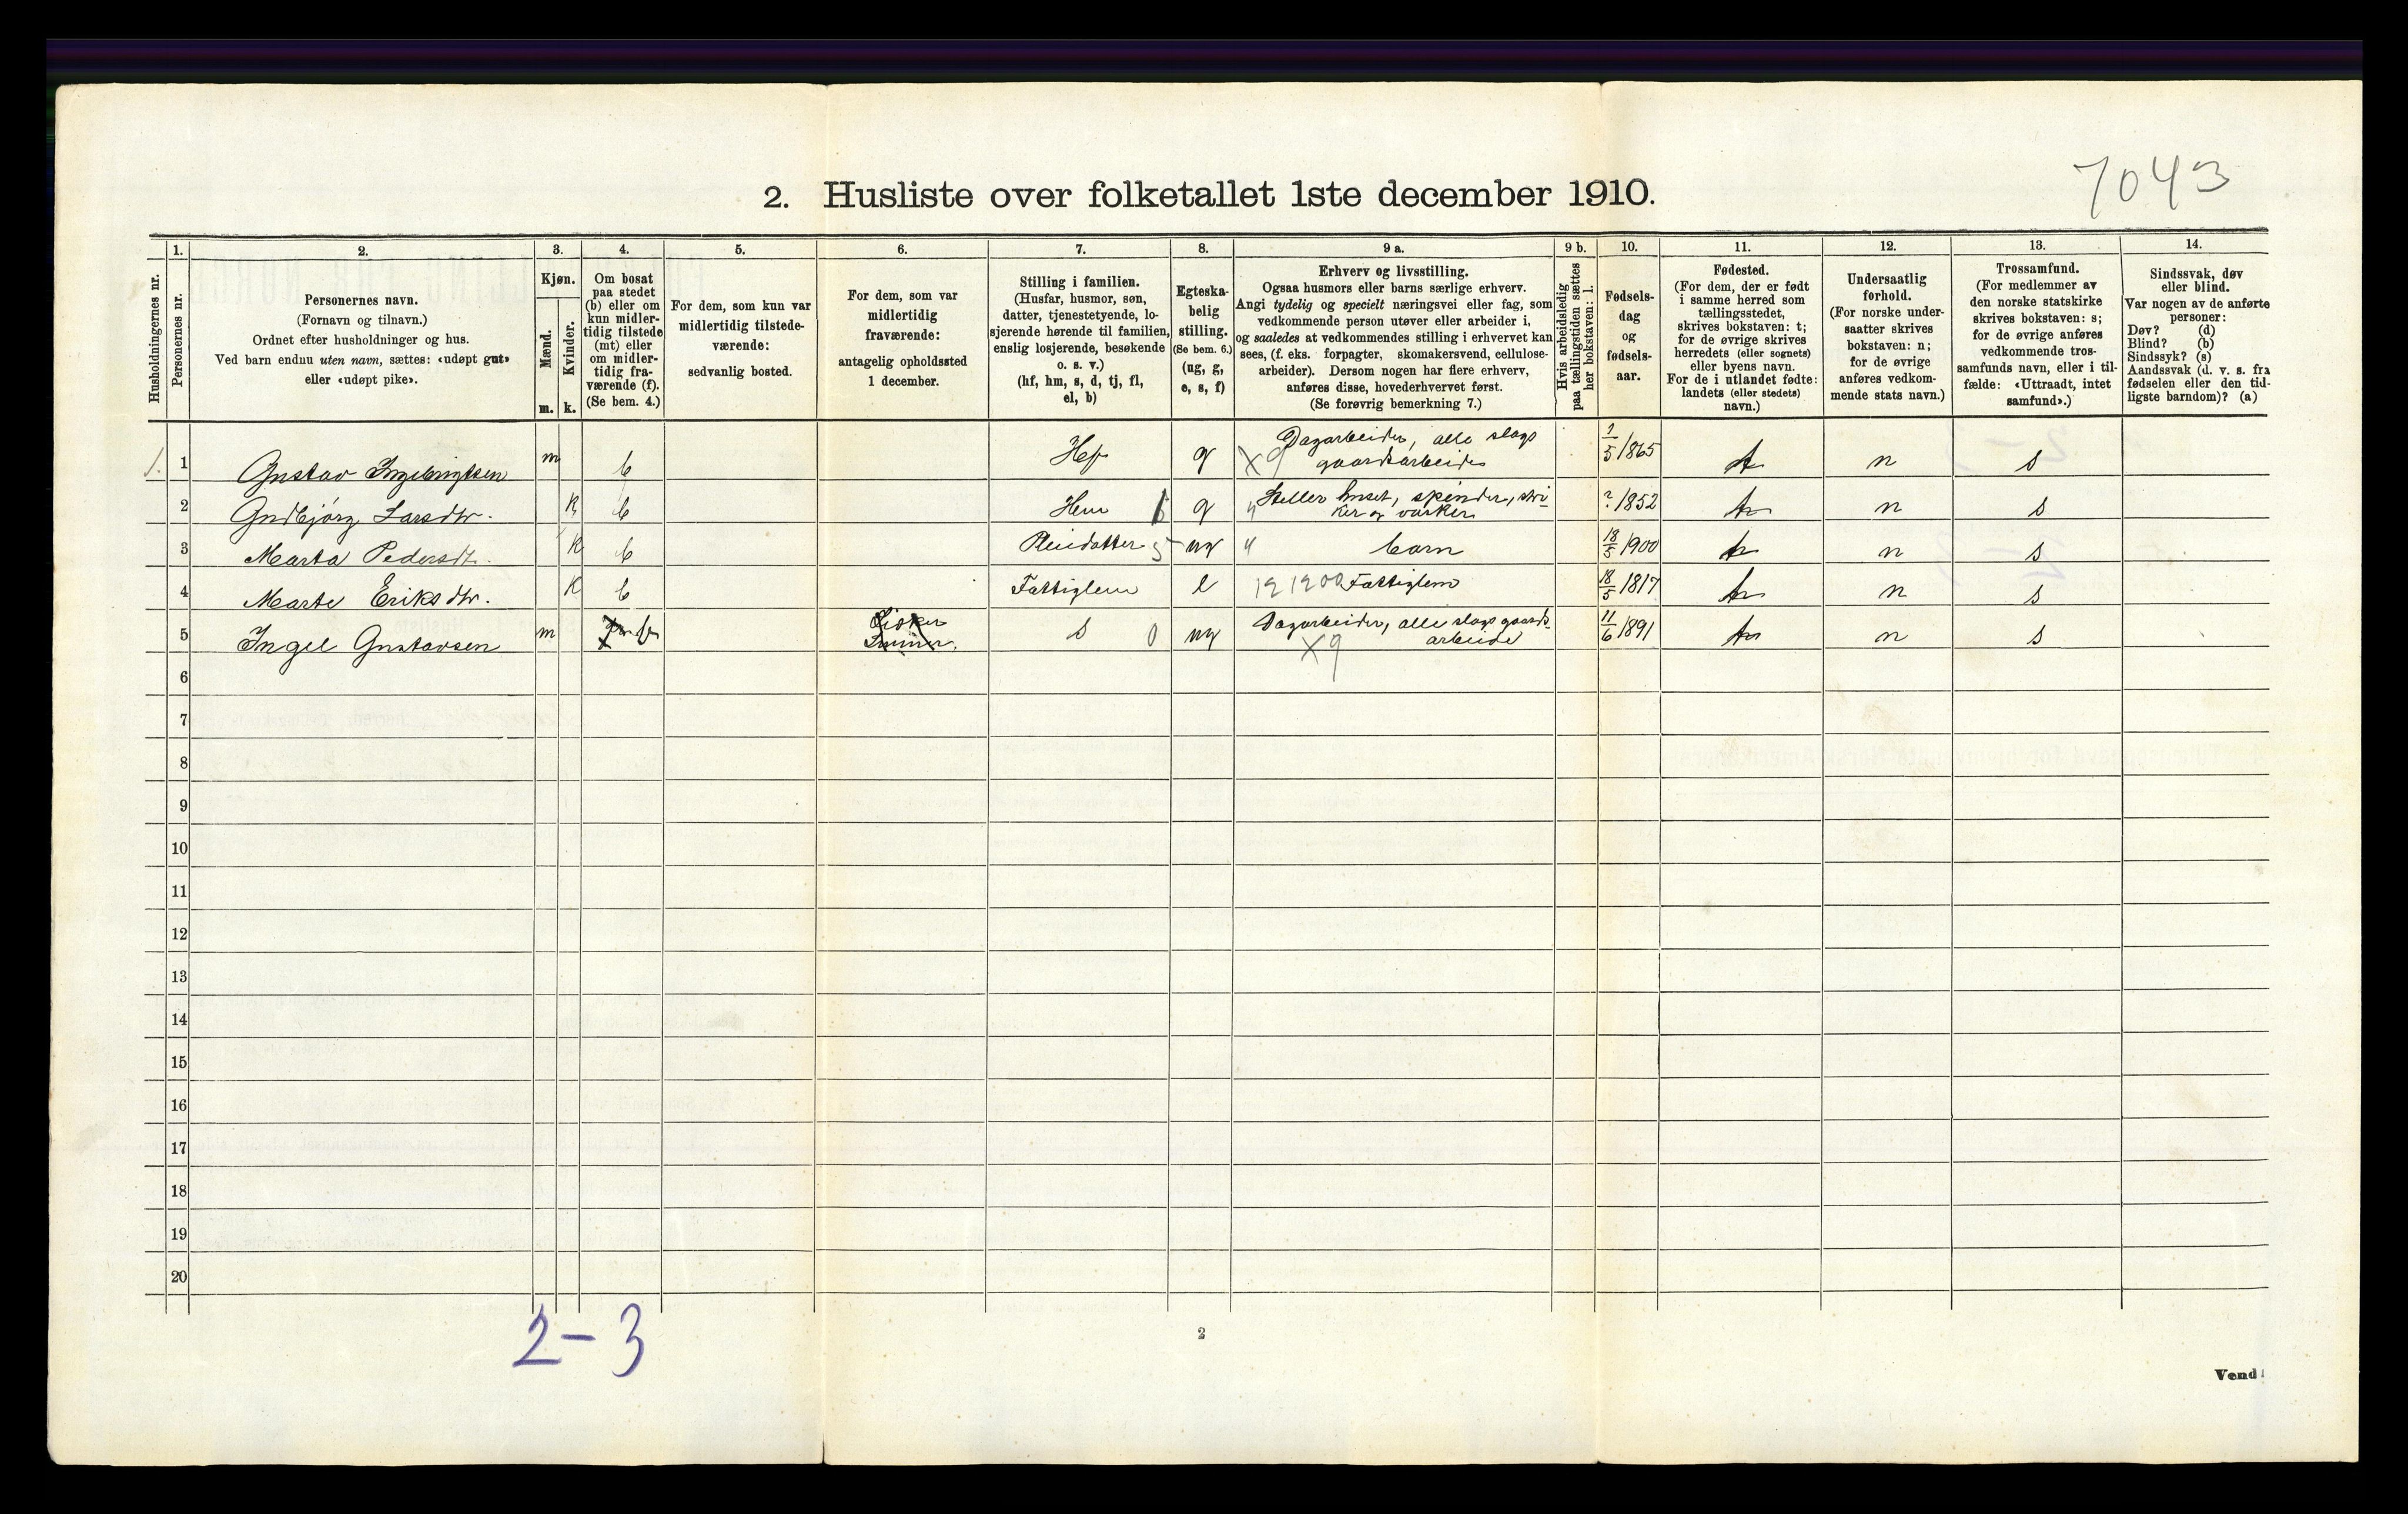 7043
2. Husliste over folketallet 1ste december 1910.
Husholdningernes nr.
1.
Personernes nr.
2.
Personernes navn.
(Fornavn og tilnavn.)
Ordnet efter husholdninger og hus.
Ved barn endnu uten navn, sættes: «udøpt gut»
eller «udøpt pike».
3.
Kjøn.
Mænd.
Kvinder.
m. k.
4.
Om bosat
paa stedet
(b) eller om
kun midler-
tidig tilstede
(mt) eller
om midler-
tidig fra-
værende (f).
(Se bem. 4.)
5.
For dem, som kun var
midlertidig tilstede-
værende:
sedvanlig bosted.
6.
For dem, som var
midlertidig
fraværende:
antagelig opholdssted
1 december.
7.
Stilling i familien.
(Husfar, husmor, søn,
datter, tjenestetyende, lo-
sjerende hørende til familien,
enslig losjerende, besøkende
o. s. v.)
(hf, hm, s, d, tj, fl,
el, b)
8.
Egteska-
belig
stilling.
(Se bem. 6.)
(ug, g,
e, s, f)
9 a.
Erhverv og livsstilling.
Ogsaa husmors eller barns særlige erhverv.
Angi tydelig og specielt næringsvei eller fag, som
vedkommende person utøver eller arbeider i,
og saaledes at vedkommendes stilling i erhvervet kan
sees, (f. eks. forpagter, skomakersvend, cellulose-
arbeider). Dersom nogen har flere erhverv,
anføres disse, hovederhvervet først.
(Se forøvrig bemerkning 7.)
9 b.
Hvis arbeidsledig
paa tællingstiden sættes
her bokstaven: l.
10.
Fødsels-
dag
og
fødsels-
aar.
11.
Fødested.
(For dem, der er født
i samme herred som
tællingsstedet,
skrives bokstaven: t;
for de øvrige skrives
herredets (eller sognets)
eller byens navn.
For de i utlandet fødte:
landets (eller stedets)
navn.)
12.
Undersaatlig
forhold.
(For norske under-
saatter skrives
bokstaven: n;
for de øvrige
anføres vedkom-
mende stats navn.)
13.
Trossamfund.
(For medlemmer av
den norske statskirke
skrives bokstaven: s;
for de øvrige anføres
vedkommende tros-
samfunds navn, eller i til-
fælde: «Uttraadt, intet
samfund».)
14.
Sindssvak, døv
eller blind.
Var nogen av de anførte
personer:
Døv? (d)
Blind? (b)
Sindssyk? (s)
Aandssvak (d. v. s. fra
fødselen eller den tid-
ligste barndom)? (a)
1. 1 Gustav Ingebrigtsen m b Hf g Dagarbeider, alle slags
gaardsarbeide X9 1/5 1865 t n s
2 Gudbjørg Larsdtr. k b Hm g " Steller huset, spinder, stri-
ker og vasker ? 1852 t n s
3 Marta Pedersdt. k b Pleiedatter 5 ug " barn 18/5 1900 t n s
4 Marte Eriksdtr. k b Fattiglem e 121200 Fattiglem 18/5 1817 t n s
5 Ingel Gustavsen m b s 0 ug Dagarbeider, alle slags gaards-
arbeide X9 11/6 1891 t n s
6
7
8
9
10
11
12
13
14
15
16
17
18
19
20
2-3
2
Vend!